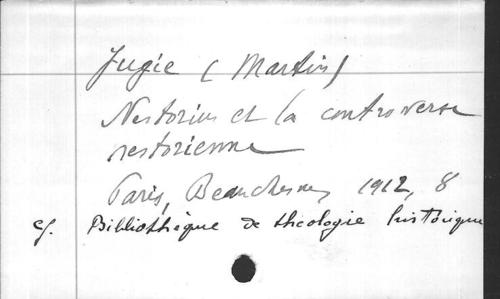 Jugie (Martin)
Nestorius et la controverse
nestorienne
Paris, Beauchesne, 1912, 8
cf. Bibliothèque de théologie historique